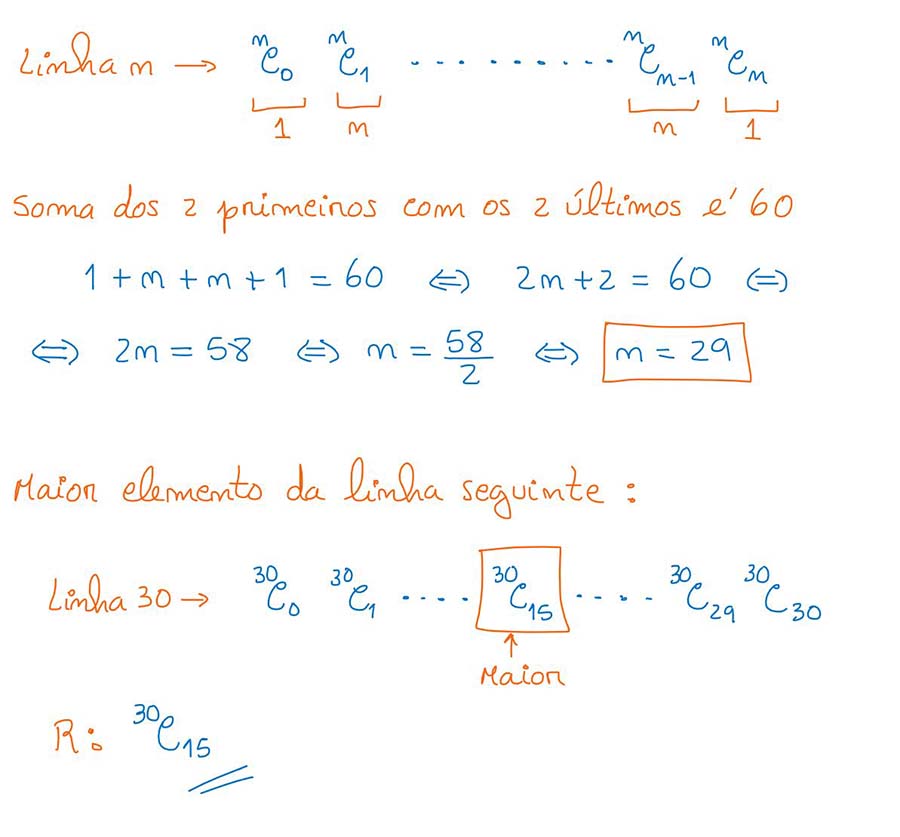 Linha n → ⁿC₀ ⁿC₁ .......... ⁿCₙ₋₁ ⁿCₙ
1 n n 1
Soma dos 2 primeiros com os 2 últimos é 60
1 + n + n + 1 = 60 ⇔ 2n + 2 = 60 ⇔
⇔ 2n = 58 ⇔ n = 58/2 ⇔ n = 29
Maior elemento da linha seguinte :
Linha 30 → ³⁰C₀ ³⁰C₁ ..... ³⁰C₁₅ ..... ³⁰C₂₉ ³⁰C₃₀
↑
Maior
R: ³⁰C₁₅